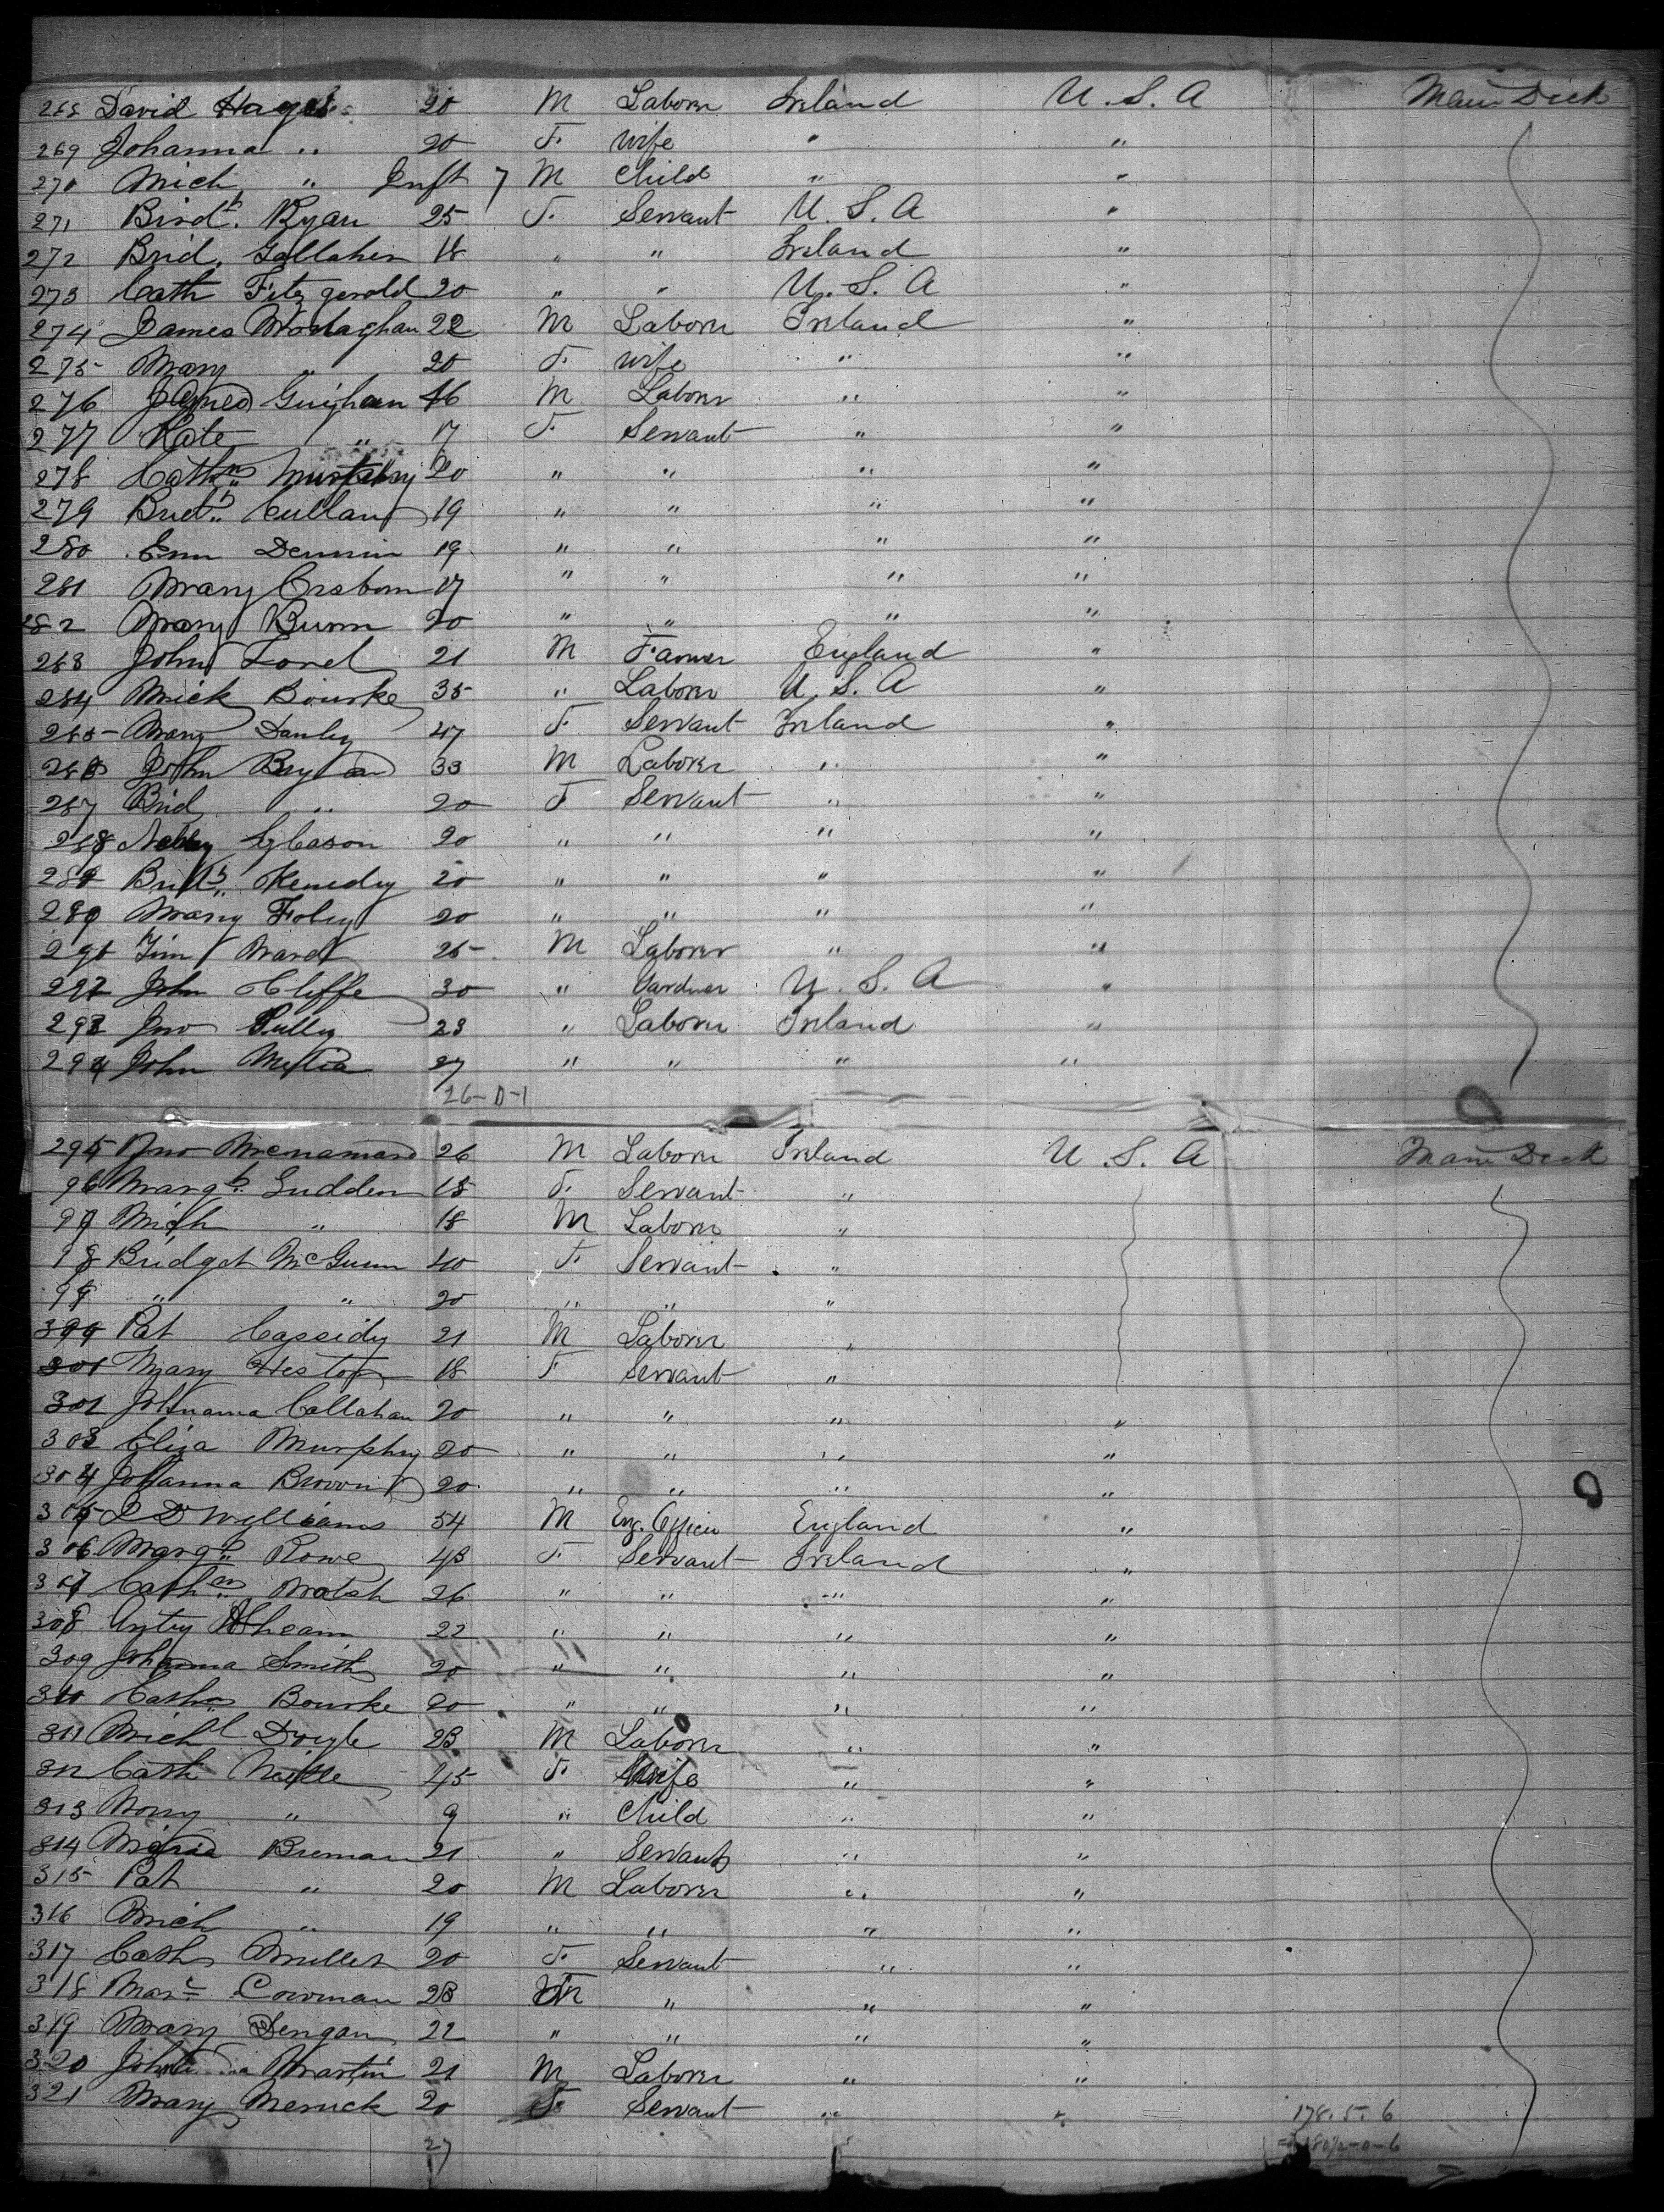 268 David Hayes 20 M Laborer Ireland U.S.A Main Deck
269 Johanna " 20 F. wife " "
270 Mich " Inft 7 M Child " "
271 Birdt. Ryan 25 F. Servant U.S.A "
272 Brid. Gallaher 18 " " Ireland "
273 Cath Fitzgerald 20 " " U.S.A "
274 James Monaghan 22 M Laborer Ireland "
275 Mary " 20 F. wife " "
276 James Guighan 46 M Laborer " "
277 Kate " 17 F. Servant " "
278 Cathn 20 " " " "
279 Bridt Cullan 19 " " " "
280 Ann Dennin 19 " " " "
281 Mary Orsborn 17 " " " "
282 Mary Burn 20 " " " "
283 John Lovel 21 M Farmer England "
284 Mick Bourke 35 " Laborer U.S.A "
285 Mary Danley 47 F Servant Ireland "
286 John Boylan 33 M Laborer " "
287 Brid " 20 F Servant " "
288 Nelly Gleason 20 " " " "
289 Bridt Kenedy 20 " " " "
290 Mary Foley 20 " " " "
291 Tim Ward 25 M Laborer " "
292 John Cliffe 30 " Gardner U.S.A "
293 Jno Tully 23 " Laborer Ireland "
294 John Melia 27 " " " "
26-0-1
295 Jno Mcnamara 26 M Laborer Ireland U.S.A Main Deck
96 Margt Gudden 18 F. Servant "
97 Mich " 18 M Laborer "
98 Bridget McGunn 40 F. Servant "
99 " " 20 " " "
300 Pat Cassidy 21 M Laborer "
301 Mary Heston 18 F. Servant "
302 Johnanna Callahan 20 " " " "
303 Eliza Murphy 20 " " " "
304 Johanna Brown 20 " " " "
305 Williams 54 M Eng. Officer England "
306 Margt Rowe 43 F. Servant Ireland "
307 Cathn Walsh 26 " " " "
308 22 " " " "
309 Johanna Smith 20 " " " "
310 Cathn Bourke 20 " " " "
311 Michl Doyle 23 M Laborer " "
312 Cath 45 F. Wife " "
313 " 9 " Child " "
314 Maria Brennan 21 " Servant " "
315 Pat " 20 M Laborer " "
316 Mich " 19 " " " "
317 Cath Miller 20 F. Servant " "
318 Mart Cowman 23 F " " "
319 Mary Dengan 22 " " " "
320 Martin 21 M Laborer " "
321 Mary Merrick 20 F. Servant " "
178. 5. 6
27